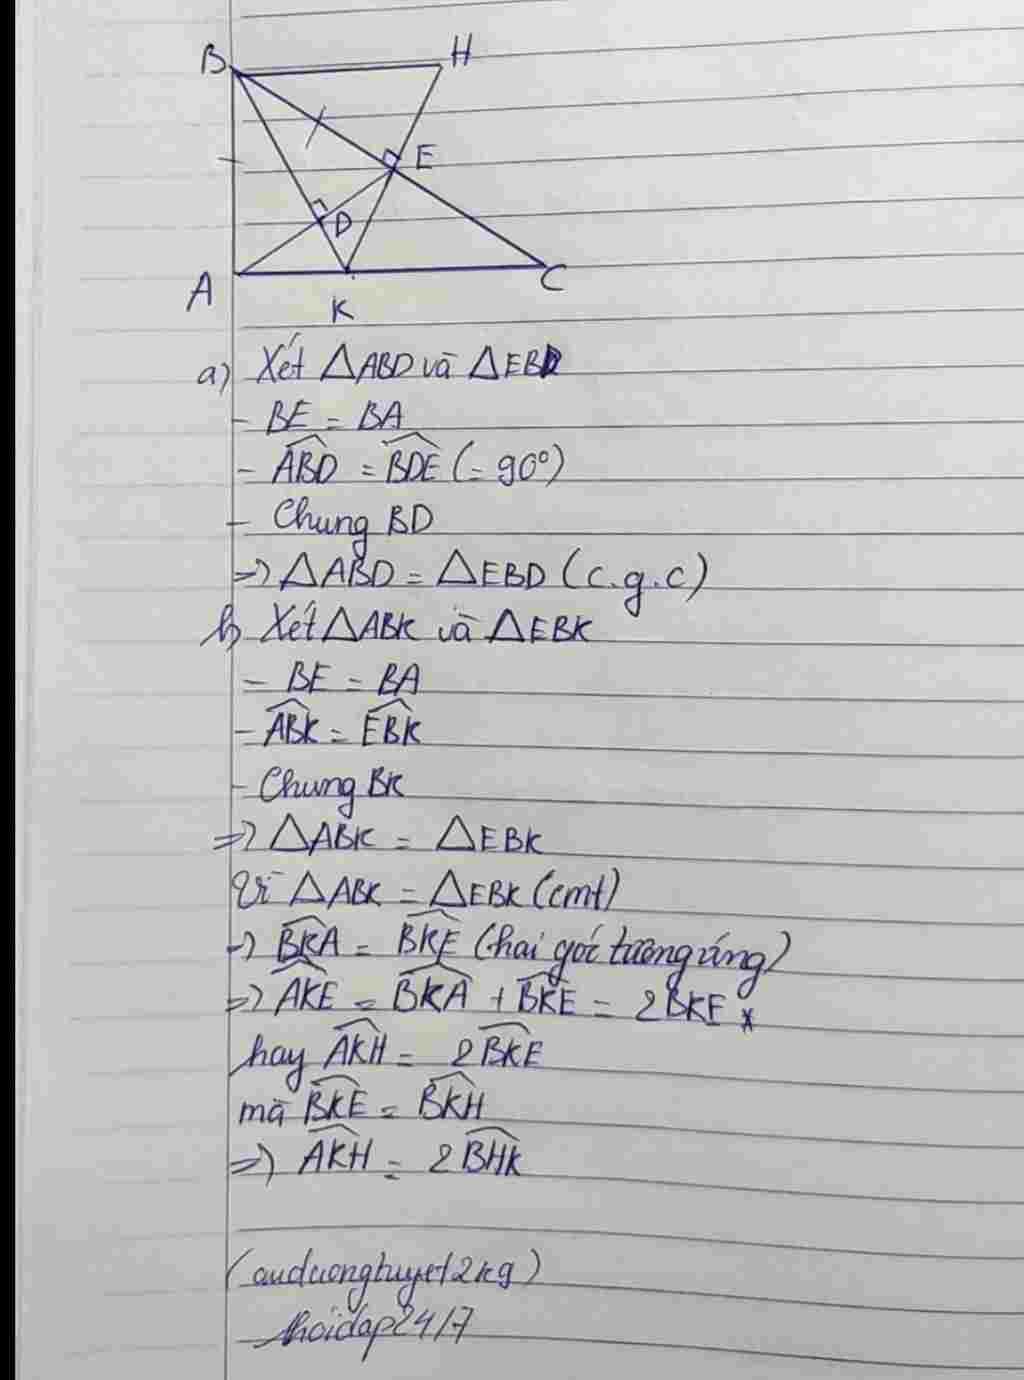 B
H
E
D
A
K
C
a) Xét △ABD và △EBD
- BE = BA
- ABD = BDE (= 90°)
- Chung BD
=> △ABD = △EBD (c.g.c)
b) Xét △ABK và △EBK
- BE = BA
- ABK = EBK
- Chung BK
=> △ABK = △EBK
Vì △ABK = △EBK (cmt)
=> BKA = BKE (hai góc tương ứng)
=> AKE = BKA + BKE = 2BKE *
hay AKH = 2BKE
mà BKE = BKH
=> AKH = 2BHK
(auduongtuyet12kg)
hoidap24/7